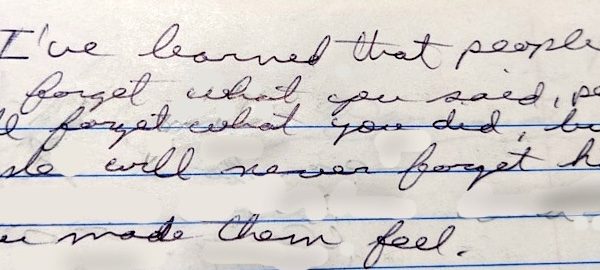 I've learned that people
forget what you said, pe
ll forget what you did, bu
ple will never forget h
u made them feel.